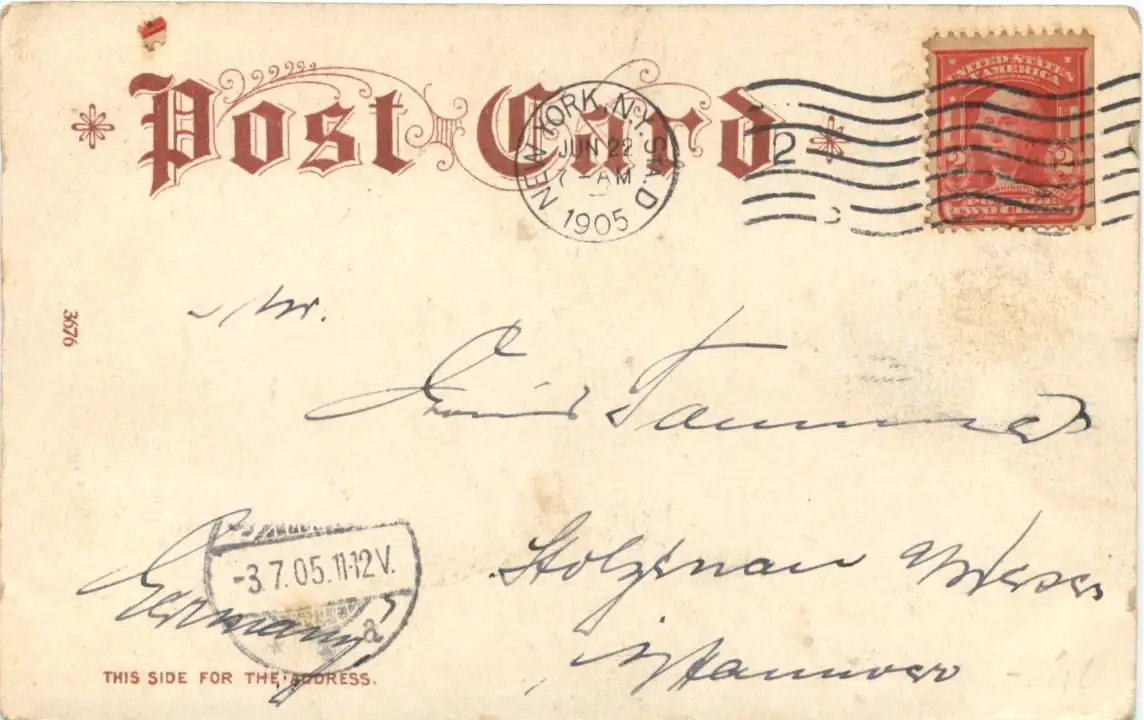 Post Card
NEW YORK, N.Y. STA. D
JUN 22
7 - AM
1905
2
UNITED STATES
OF AMERICA
2 2
3676
Mr.
Stolzenau a/Weser
i/Hannover
Germany
-3.7.05.11-12V.
a
THIS SIDE FOR THE ADDRESS.